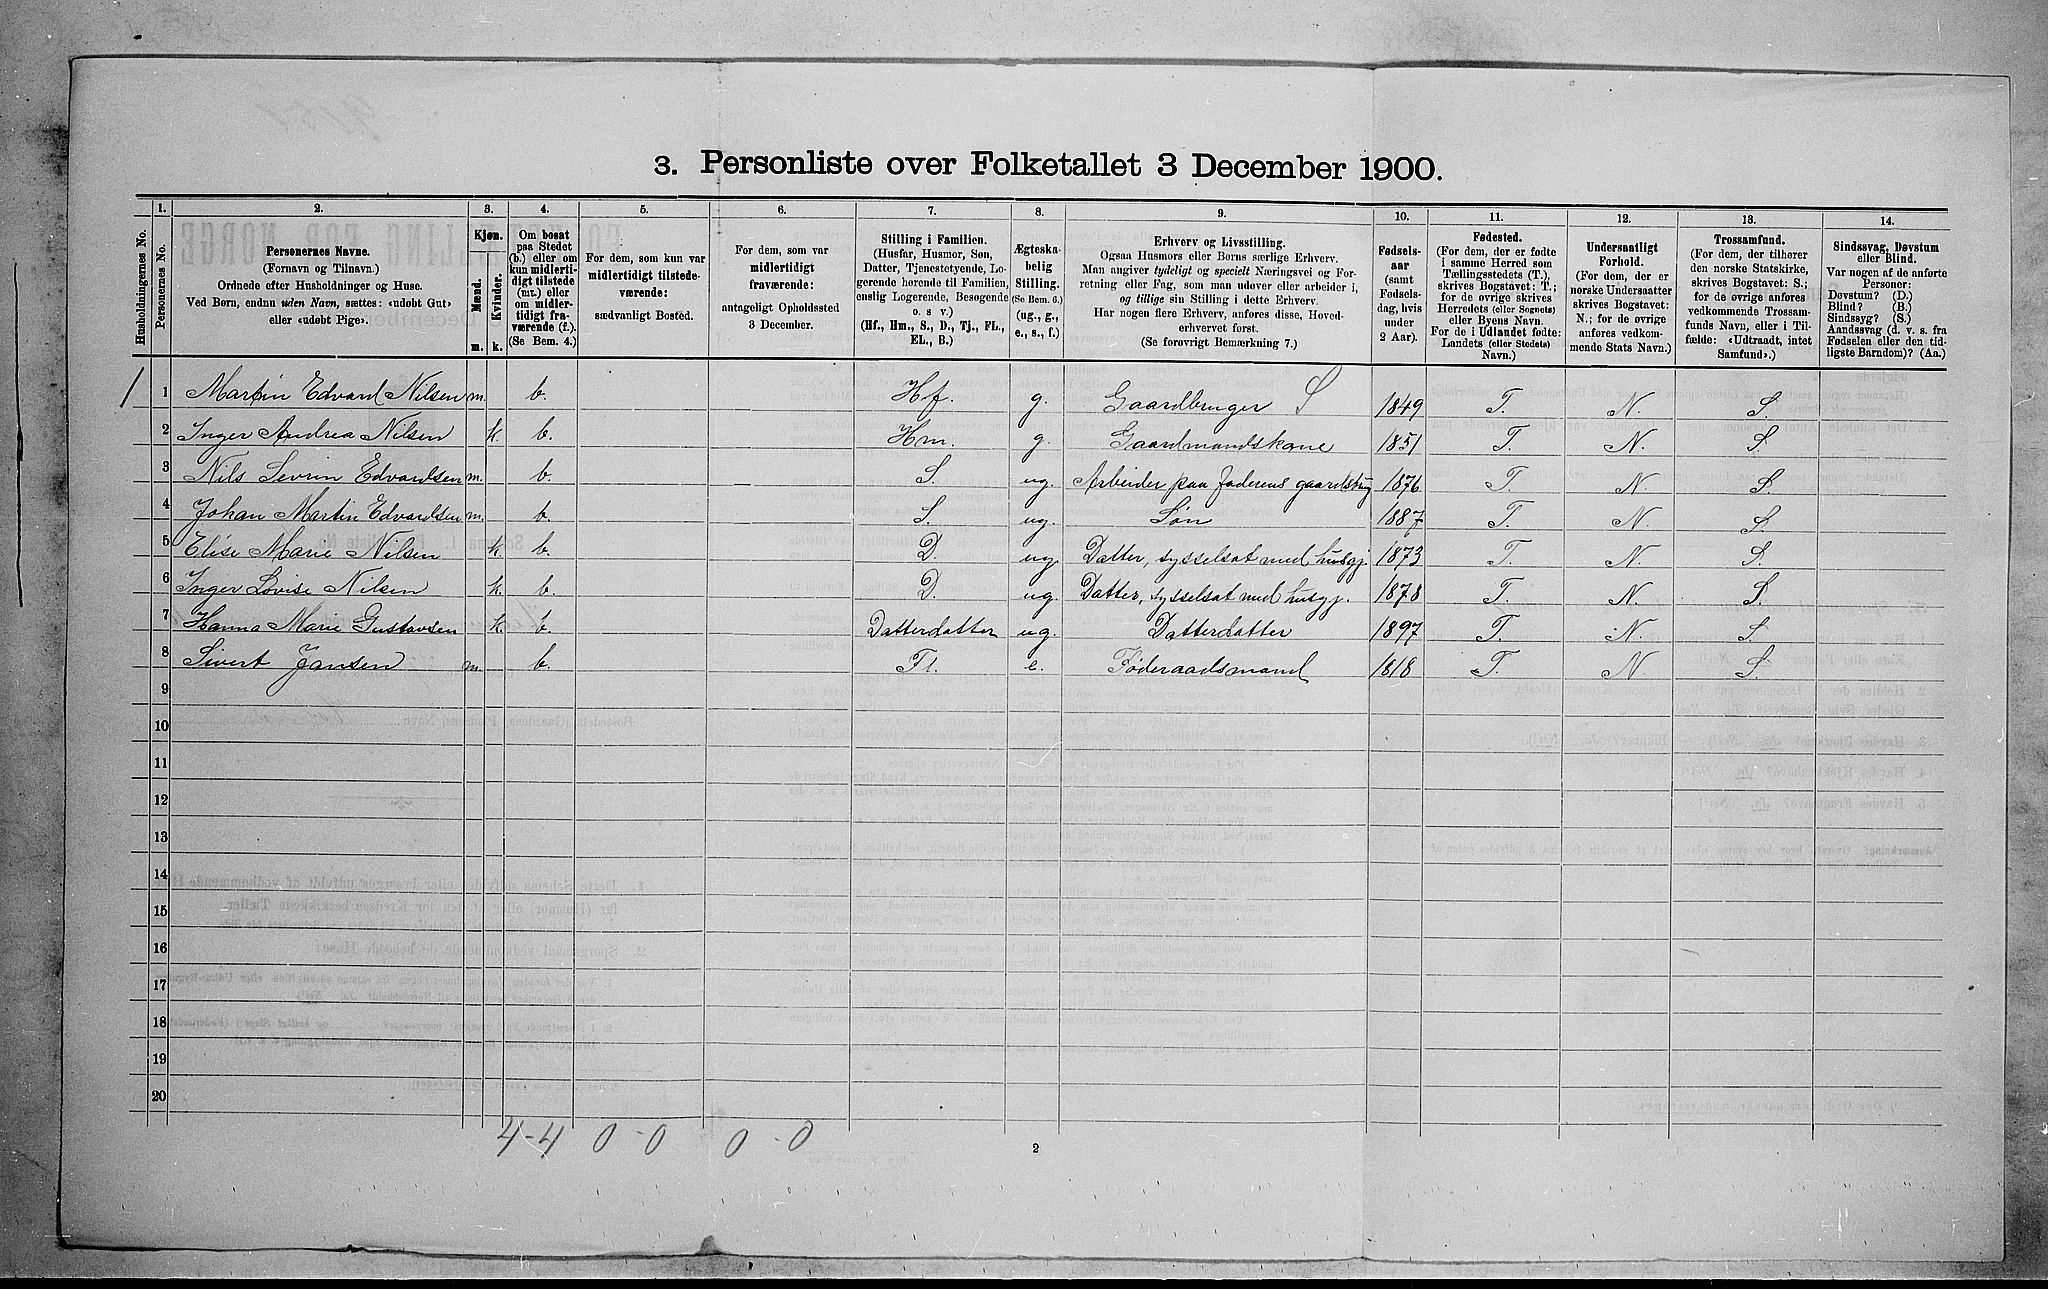 3. Personliste over Folketallet 3 December 1900.
Husholdningernes No.
1. Personernes No.
2. Personernes Navne. (Fornavn og Tilnavn.) Ordnede efter Husholdninger og Huse. Ved Børn, endnu uden Navn, sættes: «udøbt Gut» eller «udøbt Pige».
3. Kjøn. Mænd. m. Kvinder. k.
4. Om bosat paa Stedet (b.) eller om kun midlertidigt tilstede (mt.) eller om midlertidigt fraværende (f.). (Se Bem. 4.)
5. For dem, som kun var midlertidigt tilstedeværende: sædvanligt Bosted.
6. For dem, som var midlertidigt fraværende: antageligt Opholdssted 3 December.
7. Stilling i Familien. (Husfar, Husmor, Søn, Datter, Tjenestetyende, Logerende hørende til Familien, enslig Logerende, Besøgende o. s v.) (Hf., Hm., S., D., Tj., FL., EL., B.)
8. Ægteskabelig Stilling. (Se Bem. 6.) (ug., g., e., s., f.)
9. Erhverv og Livsstilling. Ogsaa Husmors eller Børns særlige Erhverv. Man angiver tydeligt og specielt Næringsvei og Forretning eller Fag, som man udøver eller arbeider i, og tillige sin Stilling i dette Erhverv. Har nogen flere Erhverv, anføres disse, Hovederhvervet først. (Se forøvrigt Bemærkning 7.)
10. Fødselsaar (samt Fødselsdag, hvis under 2 Aar).
11. Fødested. (For dem, der er fødte i samme Herred som Tællingsstedets (T.), skrives Bogstavet: T.; for de øvrige skrives Herredets (eller Sognets) eller Byens Navn. For de i Udlandet fødte: Landets (eller Stedets) Navn.)
12. Undersaatligt Forhold. (For dem, der er norske Undersaatter skrives Bogstavet: N.; for de øvrige anføres vedkommende Stats Navn.)
13. Trossamfund. (For dem, der tilhører den norske Statskirke, skrives Bogstavet: S.; for de øvrige anføres vedkommende Trossamfunds Navn, eller i Tilfælde: «Udtraadt, intet Samfund».)
14. Sindssvag, Døvstum eller Blind. Var nogen af de anførte Personer: Døvstum? (D.) Blind? (B.) Sindssyg? (S.) Aandssvag (d. v. s. fra Fødselen eller den tidligste Barndom)? (Aa.)
1 1 Martin Edvard Nilsen m. b. Hf. g. Gaardbruger S 1849 T. N. S.
2 Inger Andrea Nilsen k. b. Hm. g. Gaardmandskone 1851 T. N. S.
3 Nils Sevrin Edvardsen m. b. S. ug. Arbeider paa faderens gaardsbrug 1876 T. N. S.
4 Johan Martin Edvardsen m. b. S. ug. Søn 1887 T. N. S.
5 Elise Marie Nilsen k. b. D. ug. Datter, sysselsat med husgj. 1873 T. N. S.
6 Inger Lovise Nilsen k. b. D. ug. Datter, sysselsat med husgj. 1878 T. N. S.
7 Hanna Marie Gustavsen k. b. Datterdatter ug. Datterdatter 1897 T. N. S
8 Sivert Jansen m. b. Fl. e. Føderaadsmand 1818 T. N. S
9
10
11
12
13
14
15
16
17
18
19
20
4-4 0-0 0-0
2